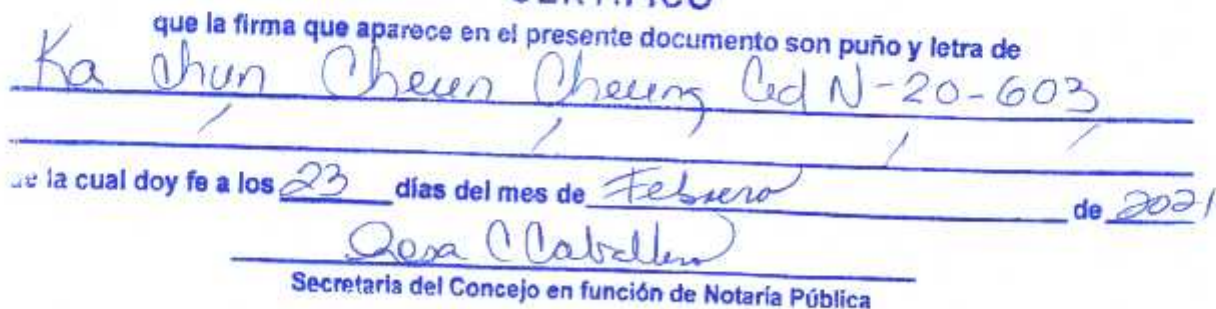 CERTIFICO
que la firma que aparece en el presente documento son puño y letra de
Ka Chun Cheun Cheung Ced N-20-603
de la cual doy fe a los 23 días del mes de Febrero de 2021
Rosa C Caballero
Secretaria del Concejo en función de Notaría Pública